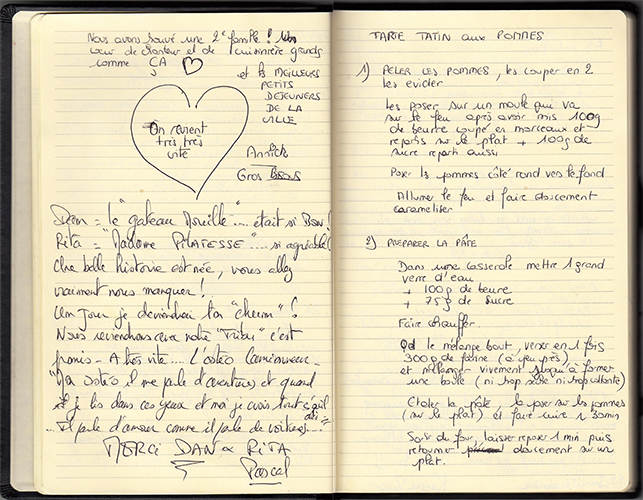 Nous avons trouvé une 2e famille ! Un
cœur de chanteur et de cuisinière grands
comme ÇA
et les MEILLEURS
PETITS
DEJEUNERS
DE LA
VILLE
On revient
très, très
vite
Annick
Gros BISOUS
le "gateau Noreille".... était si BON !
Rita = "Madame PILATESSE".... si agréable !
Une belle histoire est née, vous allez
vraiment nous manquer !
Un jour je deviendrai ta "
Nous reviendrons votre "Tribu" c'est
promis - A très vite.... L'ostéo Camionneur -
il me parle d'aventures et quand
je lis dans ces yeux et moi je crois tout c'qu'il
... Il parle d'amour comme il parle de voitures...
MERCI DAN & RITA
Pascal
TARTE TATIN aux POMMES
1) PELER LES POMMES, les couper en 2
les evider
les poser sur un moule qui va
sur le feu après avoir mis 100g
de beurre coupé en morceaux et
repartis sur le plat + 100g de
sucre reparti aussi
Poser les pommes côté rond vers le fond
Allumer le feu et faire doucement
carameliser
2) PREPARER LA PÂTE
Dans une casserole mettre 1 grand
verre d'eau
+ 100g de beurre
+ 75g de sucre
Faire chauffer.
Qd le mélange bout, verser en 1 fois
300g de farine (à peu près)
et mélanger vivement jusqu'à former
une boule (ni trop sèche ni trop collante)
Etaler la pâte, la poser sur les pommes
(sur le plat) et faire cuire 1/2 30min
Sorti du four, laisser reposer 1 min puis
retourner doucement sur un
plat.